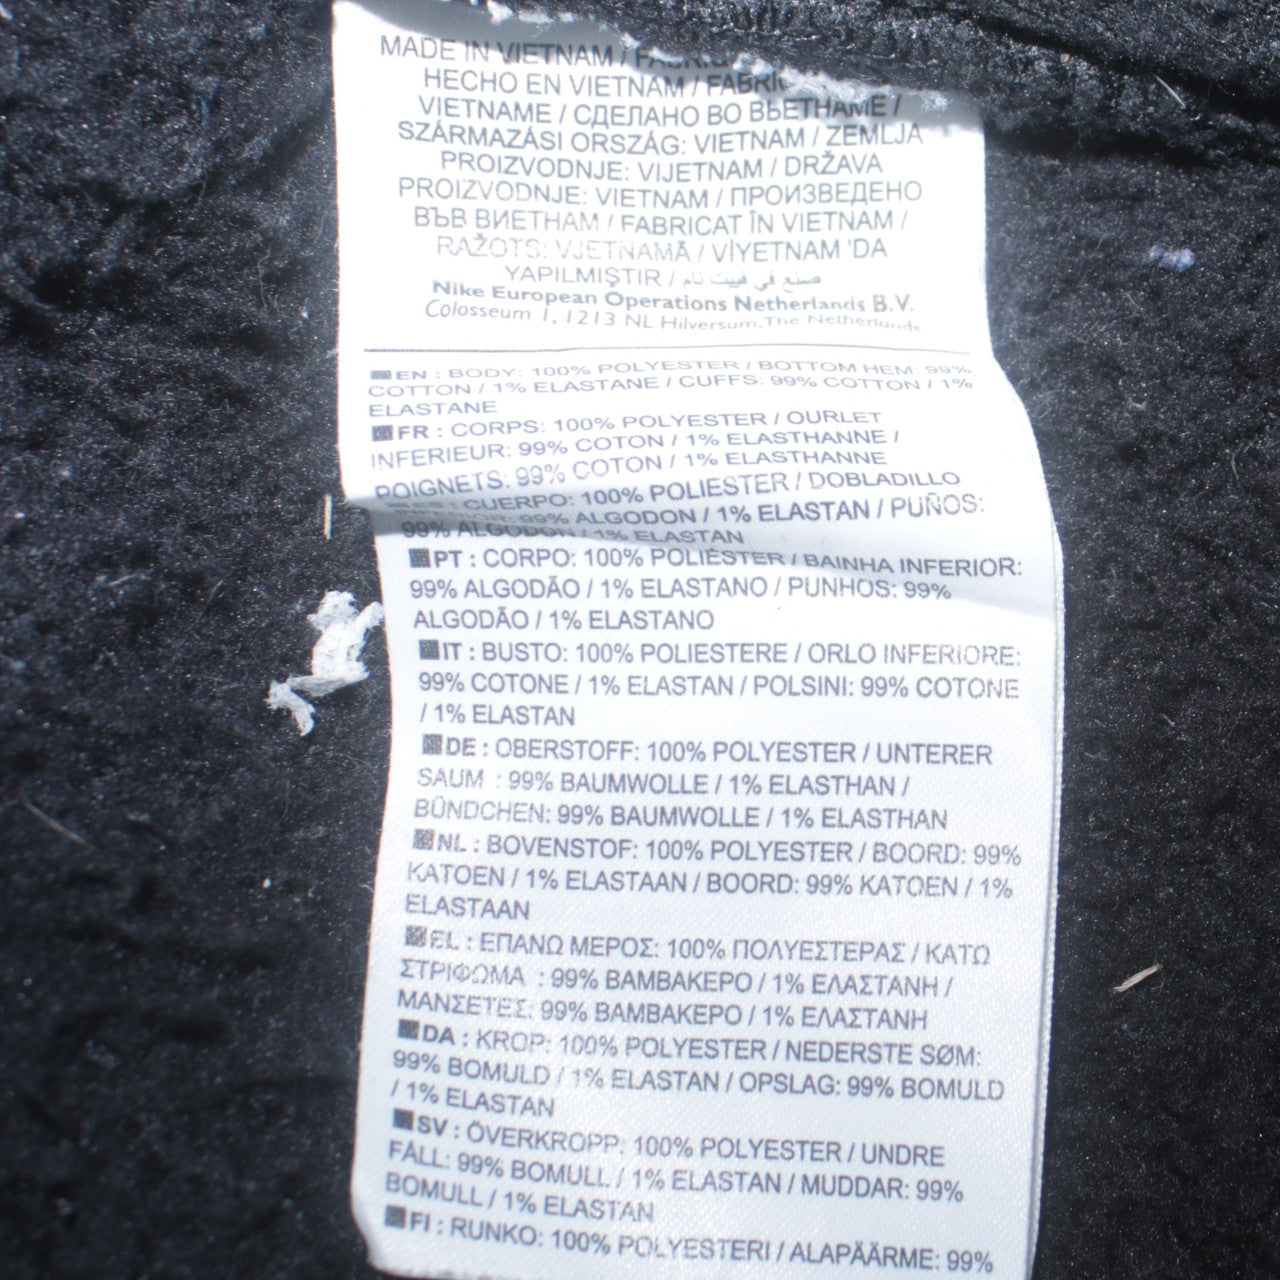 MADE IN VIETNAM /
HECHO EN VIETNAM /
VIETNAME / СДЕЛАНО ВО ВЬЕТНАМЕ /
SZÁRMAZÁSI ORSZÁG: VIETNAM / ZEMLJA
PROIZVODNJE: VIJETNAM / DRŽAVA
PROIZVODNJE: VIETNAM / ПРОИЗВЕДЕНО
ВЪВ ВИЕТНАМ / FABRICAT ÎN VIETNAM /
RAŽOTS: VJETNAMĀ / VİYETNAM 'DA
YAPILMIŞTIR / صنع في فييت نام
Nike European Operations Netherlands B.V.
Colosseum 1, 1213 NL Hilversum, The Netherlands
EN : BODY: 100% POLYESTER / BOTTOM HEM: 99%
COTTON / 1% ELASTANE / CUFFS: 99% COTTON / 1%
ELASTANE
FR : CORPS: 100% POLYESTER / OURLET
INFERIEUR: 99% COTON / 1% ELASTHANNE /
POIGNETS: 99% COTON / 1% ELASTHANNE
ES : CUERPO: 100% POLIESTER / DOBLADILLO
99% ALGODON / 1% ELASTAN / PUÑOS:
99% ALGODON / 1% ELASTAN
PT : CORPO: 100% POLIÉSTER / BAINHA INFERIOR:
99% ALGODÃO / 1% ELASTANO / PUNHOS: 99%
ALGODÃO / 1% ELASTANO
IT : BUSTO: 100% POLIESTERE / ORLO INFERIORE:
99% COTONE / 1% ELASTAN / POLSINI: 99% COTONE
/ 1% ELASTAN
DE : OBERSTOFF: 100% POLYESTER / UNTERER
SAUM : 99% BAUMWOLLE / 1% ELASTHAN /
BÜNDCHEN: 99% BAUMWOLLE / 1% ELASTHAN
NL : BOVENSTOF: 100% POLYESTER / BOORD: 99%
KATOEN / 1% ELASTAAN / BOORD: 99% KATOEN / 1%
ELASTAAN
EL : ΕΠΑΝΩ ΜΕΡΟΣ: 100% ΠΟΛΥΕΣΤΕΡΑΣ / ΚΑΤΩ
ΣΤΡΙΦΩΜΑ : 99% ΒΑΜΒΑΚΕΡΟ / 1% ΕΛΑΣΤΑΝΗ /
ΜΑΝΣΕΤΕΣ: 99% ΒΑΜΒΑΚΕΡΟ / 1% ΕΛΑΣΤΑΝΗ
DA : KROP: 100% POLYESTER / NEDERSTE SØM:
99% BOMULD / 1% ELASTAN / OPSLAG: 99% BOMULD
/ 1% ELASTAN
SV : ÖVERKROPP: 100% POLYESTER / UNDRE
FÅLL: 99% BOMULL / 1% ELASTAN / MUDDAR: 99%
BOMULL / 1% ELASTAN
FI : RUNKO: 100% POLYESTERI / ALAPÄÄRME: 99%